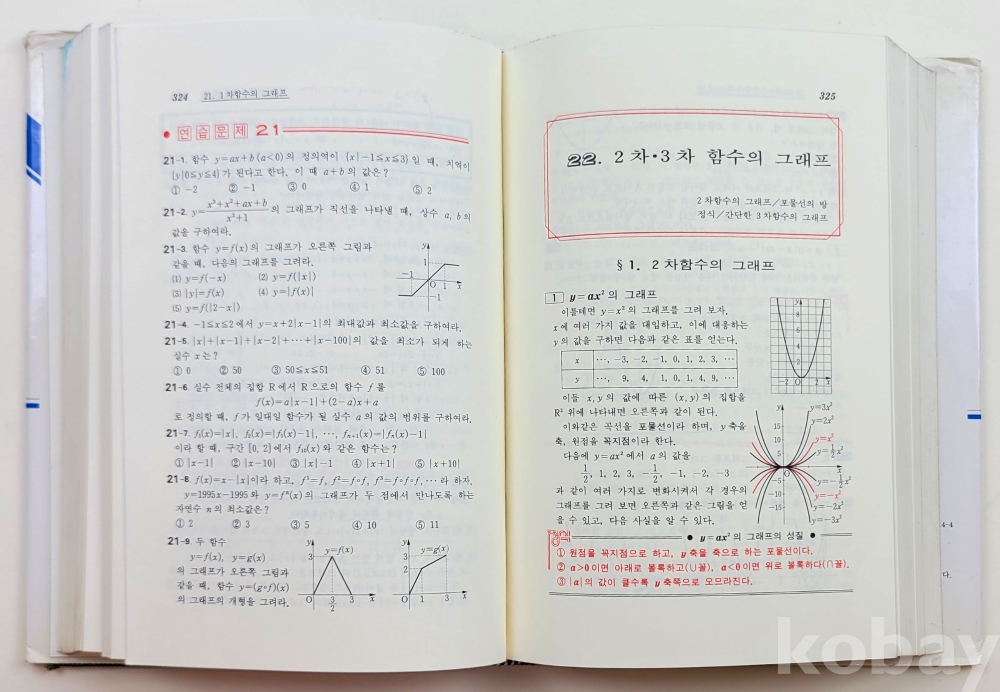 324 21. 1차함수의 그래프
연습문제 21
21-1. 함수 y=ax+b(a<0)의 정의역이 {x|-1≦x≦3}일 때, 치역이
{y|0≦y≦4}가 된다고 한다. 이 때 a+b의 값은?
① -2 ② -1 ③ 0 ④ 1 ⑤ 2
21-2. y=(x³+x²+ax+b)/(x²+1)의 그래프가 직선을 나타낼 때, 상수 a, b의
값을 구하여라.
21-3. 함수 y=f(x)의 그래프가 오른쪽 그림과
같을 때, 다음의 그래프를 그려라.
(1) y=f(-x) (2) y=f(|x|)
(3) |y|=f(x) (4) y=|f(x)|
(5) y=f(|2-x|)
y 1 -1 O 1 x -1
21-4. -1≦x≦2에서 y=x+2|x-1|의 최대값과 최소값을 구하여라.
21-5. |x|+|x-1|+|x-2|+⋯+|x-100|의 값을 최소가 되게 하는
실수 x는?
① 0 ② 50 ③ 50≦x≦51 ④ 51 ⑤ 100
21-6. 실수 전체의 집합 R에서 R으로의 함수 f를
f(x)=a|x-1|+(2-a)x+a
로 정의할 때, f가 일대일 함수가 될 실수 a의 값의 범위를 구하여라.
21-7. f₁(x)=|x|, f₂(x)=|f₁(x)-1|, ⋯, fₙ₊₁(x)=|fₙ(x)-1|
이라 할 때, 구간 [0, 2]에서 f₁₀(x)와 같은 함수는?
① |x-1| ② |x-10| ③ |x|-1 ④ |x+1| ⑤ |x+10|
21-8. f(x)=x-|x|이라 하고, f¹=f, f²=f∘f, f³=f∘f², ⋯라 하자.
y=1995x-1995와 y=fⁿ(x)의 그래프가 두 점에서 만나도록 하는
자연수 n의 최소값은?
① 2 ② 3 ③ 5 ④ 10 ⑤ 11
21-9. 두 함수
y=f(x), y=g(x)
의 그래프가 오른쪽 그림과
같을 때, 함수 y=(g∘f)(x)
의 그래프의 개형을 그려라.
y 3 y=f(x) O 3/2 3 x
y 3 2 y=g(x) O 1 3 x
325
22. 2차·3차 함수의 그래프
2차함수의 그래프/포물선의 방
정식/간단한 3차함수의 그래프
§1. 2차함수의 그래프
1 y=ax²의 그래프
이를테면 y=x²의 그래프를 그려 보자.
x에 여러 가지 값을 대입하고, 이에 대응하는
y의 값을 구하면 다음과 같은 표를 얻는다.
x ⋯, -3, -2, -1, 0, 1, 2, 3, ⋯
y ⋯, 9, 4, 1, 0, 1, 4, 9, ⋯
y 8 6 4 2 -2 O 2 x
이들 x, y의 값에 따른 (x, y)의 집합을
R² 위에 나타내면 오른쪽과 같이 된다.
이와같은 곡선을 포물선이라 하며, y축을
축, 원점을 꼭지점이라 한다.
다음에 y=ax²에서 a의 값을
1/2, 1, 2, 3, -1/2, -1, -2, -3
과 같이 여러 가지로 변화시켜서 각 경우의
그래프를 그려 보면 오른쪽과 같은 그림을 얻
을 수 있고, 다음 사실을 알 수 있다.
y 15 10 5 O x -5 -10 -15
y=3x²
y=2x²
y=x²
y=1/2x²
y=-1/2x²
y=-x²
y=-2x²
y=-3x²
정석
● y=ax²의 그래프의 성질 ●
① 원점을 꼭지점으로 하고, y축을 축으로 하는 포물선이다.
② a>0이면 아래로 볼록하고(∪꼴), a<0이면 위로 볼록하다(∩꼴).
③ |a|의 값이 클수록 y축쪽으로 오므라진다.
4-4
다.
kobay